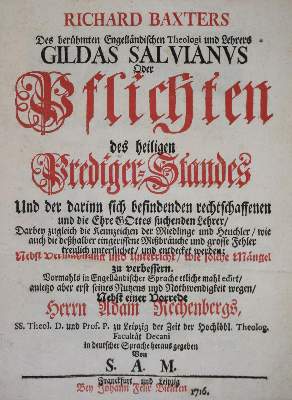 RICHARD BAXTERS
Des berühmten Engelländischen Theologi und Lehrers
GILDAS SALVIANVS
Oder
Pflichten
des heiligen
Prediger-Standes
Und der darinn sich befindenden rechtschaffenen
und die Ehre GOttes suchenden Lehrer/
Darbey zugleich die Kennzeichen der Miedlinge und Heuchler/ wie
auch die deßhalber eingerissene Mißbräuche und grosse Fehler
treulich untersuchet/ und entdecket werden:
Nebst Vermahnung und Unterricht/ wie solche Mängel
zu verbessern.
Vormahls in Engelländischer Sprache etliche mahl edirt/
anietzo aber erst seines Nutzens und Nothwendigkeit wegen/
Nebst einer Vorrede
Herrn Adam Rechenbergs,
SS. Theol. D. und Prof. P. zu Leipzig der Zeit der Hochlöbl. Theolog.
Facultät Decani
in deutscher Sprache heraus gegeben
Von
S. A. M.
Franckfurt und Leipzig
Bey Johann Felir Bielcken 1716.